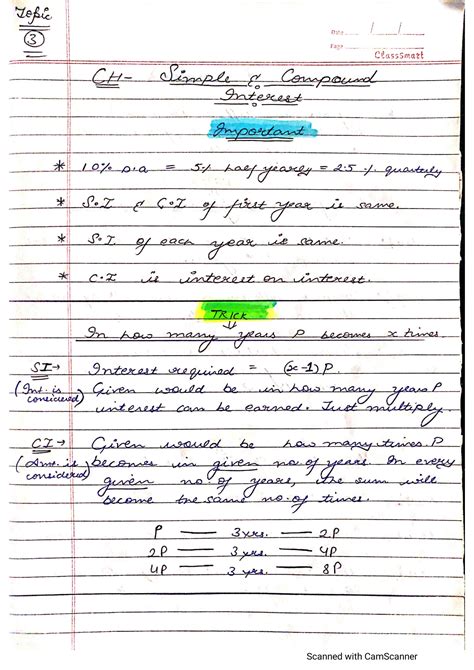 Topic
3
Date / /
Page
ClassSmart
CH- Simple & Compound
Interest
Important
* 10% p.a = 5% half yearly = 2.5 % quarterly
* S.I & C.I of first year is same.
* S.I. of each year is same.
* C.I is interest on interest.
TRICK
In how many years P becomes x times.
SI→ Interest required = (x-1) P.
(Int. is considered) Given would be in how many years P
interest can be earned. Just multiply.
CI→ Given would be how many times P
(Amt. is considered) becomes in given no of years. In every
given no of years, the sum will
become the same no. of times.
P — 3 yrs. — 2P
2P — 3 yrs. — 4P
4P — 3 yrs. — 8P
Scanned with CamScanner